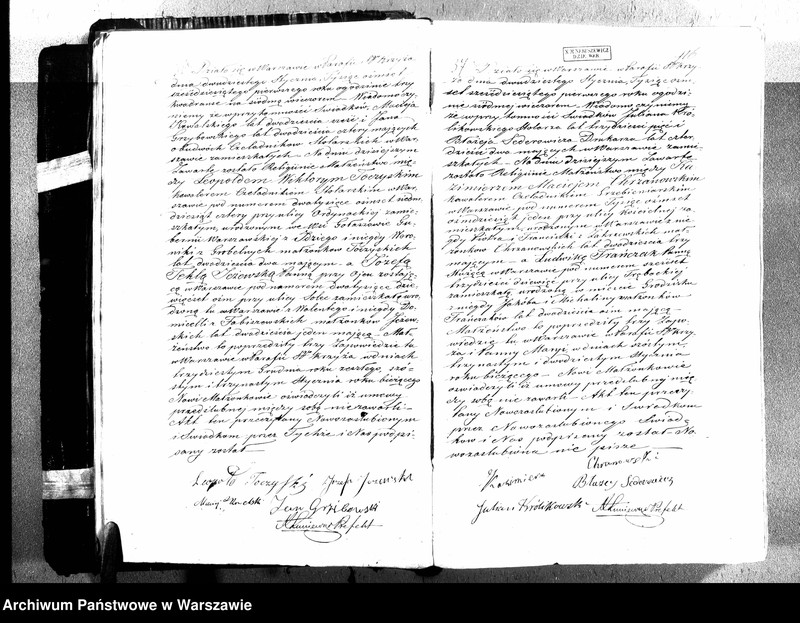 Działo się w Warszawie w Parafii Sgo Krzyża
dnia dwudziestego Stycznia, Tysiąc ośmset
sześćdziesiątego pierwszego roku o godzinie trzy
kwadranse na siódmą wieczorem. Wiadomo czy-
niemy że w przytomności Świadków, Macieja
Kowalskiego lat dwadzieścia sześć i Jana
Grzybowskiego lat dwadzieścia cztery mających
obudwóch Czeladników Stolarskich w War-
szawie zamieszkałych. Na dniu dzisiejszym
Zawarte zostało Religijne Małżeństwo mię-
dzy Leopoldem Wiktorym Toczyskim
kawalerem Czeladnikiem Stolarskim w War-
szawie pod numerem dwa tysiące ośmset siedm-
dziesiąt cztery przy ulicy Ordynackiej zamie-
szkałym, urodzonym we Wsi Gołaszewie Gu-
bernii Warszawskiej z Idziego i niegdy Wero-
niki z małżonków Toczyskich
lat dwadzieścia dwa mającym – a Józefą
Teklą Panną przy Ojcu zostają-
cą w Warszawie pod numerem dwa tysiące dzie-
więćset ośm przy ulicy Solec zamieszkałą uro-
dzoną tu w Warszawie z Walentego i niegdy Do-
micelli z małżonków
lat dwadzieścia jeden mającą – Mał-
żeństwo to poprzedziły trzy Zapowiedzie tu
w Warszawie w Parafii Sgo Krzyża w dniach
trzydziestym Grudnia roku zeszłego, szó-
stym i trzynastym Stycznia roku bieżącego
Nowi Małżonkowie oświadczyli iż umowy
przedślubnej między sobą nie zawarli –
Akt ten przeczytany Nowozaślubionym
i Świadkom przez Tychże i Nas podpi-
sany został –
Leopold Toczyski Józef
Maciej Kowalski Jan Grzibowski
37 Działo się w Warszawie w Parafii Sgo Krzy-
ża dnia dwudziestego Stycznia, Tysiąc ośm-
set sześćdziesiątego pierwszego roku o godzi-
nie siódmej wieczorem. Wiadomo czyniemy
że w przytomności Świadków Juliana Kró-
likowskiego Stolarza lat trzydzieści pięć i
Błażeja Sederowicza Drukarza lat czter-
dzieści dwa mających w Warszawie zamie-
szkałych – Na dniu dzisiejszym Zawarte
zostało Religijne Małżeństwo między Ka-
zimierzem Maciejem Chrzanowskim
kawalerem Czeladnikiem Grzebieniarskim
w Warszawie pod numerem Tysiąc ośmset
ośmdziesiąt jeden przy ulicy Kościelnej za-
mieszkałym, urodzonym w Warszawie z nie-
gdy Piotra i Franciszki z małż-
żonków Chrzanowskich lat dwadzieścia trzy
mającym – a Ludwiką Frańczak Panną
służącą w Warszawie pod numerem sześćset
trzydzieści dziewięć przy ulicy Trębackiej
zamieszkałą, urodzoną w mieście Grodzisku
z niegdy Jakóba i Michaliny małżonków
Frańczaków lat dwadzieścia ośm mającą –
Małżeństwo to poprzedziły trzy Zapo-
wiedzie tu w Warszawie w Parafii Sgo Krzy-
ża i Panny Maryi w dniach szóstym,
trzynastym i dwudziestym Stycznia
roku bieżącego – Nowi Małżonkowie
oświadczyli iż umowy przedślubnej mię-
dzy sobą nie zawarli – Akt ten przeczy-
tany Nowozaślubionym i Świadkom
przez Nowozaślubionego Świad-
ków i Nas podpisany został – No-
wozaślubiona nie pisze
Kazimierz Chrzanowski
Błażej Sederowicz
Julian Królikowski
Archiwum Państwowe w Warszawie